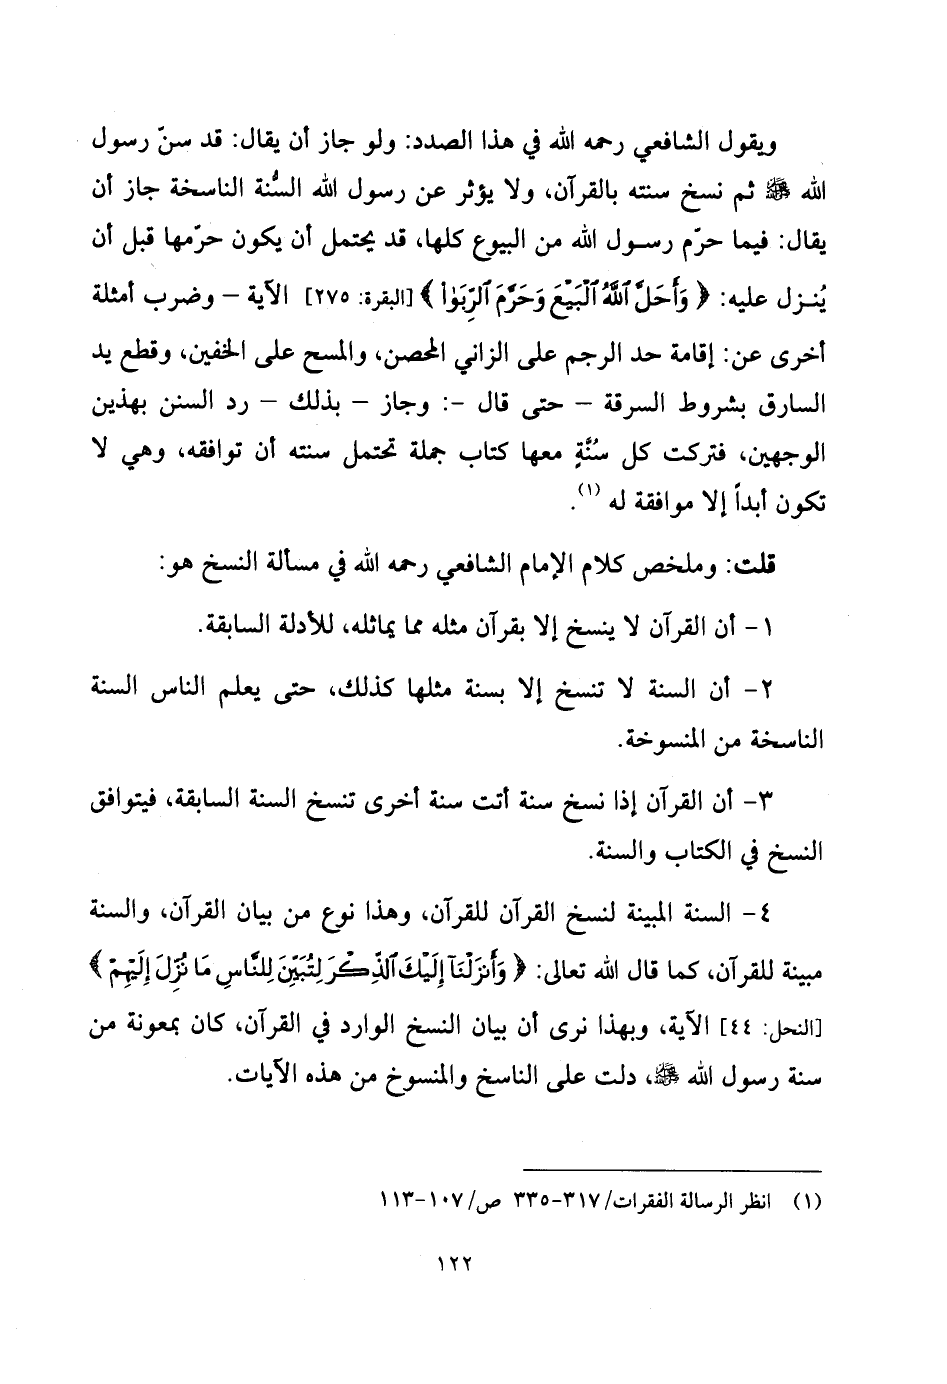 ويقول الشافعي رحمه الله في هذا الصدد: ولو جاز أن يقال: قد سنّ رسول
الله ﷺ ثم نسخ سنته بالقرآن، ولا يؤثر عن رسول الله السُّنة الناسخة جاز أن
يقال: فيما حرّم رسول الله من البيوع كلها، قد يحتمل أن يكون حرّمها قبل أن
يُنزل عليه: ﴿ وَأَحَلَّ ٱللَّهُ ٱلْبَيْعَ وَحَرَّمَ ٱلرِّبَوٰا۟ ﴾ [البقرة: ٢٧٥] الآية – وضرب أمثلة
أخرى عن: إقامة حد الرجم على الزاني المحصن، والمسح على الخفين، وقطع يد
السارق بشروط السرقة – حتى قال -: وجاز – بذلك – رد السنن بهذين
الوجهين، فتركت كل سُنَّةٍ معها كتاب جملة تحتمل سنته أن توافقه، وهي لا
تكون أبداً إلا موافقة له (١).
قلت: وملخص كلام الإمام الشافعي رحمه الله في مسألة النسخ هو:
١- أن القرآن لا ينسخ إلا بقرآن مثله مما يماثله، للأدلة السابقة.
٢- أن السنة لا تنسخ إلا بسنة مثلها كذلك، حتى يعلم الناس السنة
الناسخة من المنسوخة.
٣- أن القرآن إذا نسخ سنة أتت سنة أخرى تنسخ السنة السابقة، فيتوافق
النسخ في الكتاب والسنة.
٤- السنة المبينة لنسخ القرآن للقرآن، وهذا نوع من بيان القرآن، والسنة
مبينة للقرآن، كما قال الله تعالى: ﴿ وَأَنزَلْنَآ إِلَيْكَ ٱلذِّكْرَ لِتُبَيِّنَ لِلنَّاسِ مَا نُزِّلَ إِلَيْهِمْ ﴾
[النحل: ٤٤] الآية، وبهذا نرى أن بيان النسخ الوارد في القرآن، كان بمعونة من
سنة رسول الله ﷺ، دلت على الناسخ والمنسوخ من هذه الآيات.
(١) انظر الرسالة الفقرات/ ٣١٧-٣٣٥ ص/ ١٠٧-١١٣
١٢٢